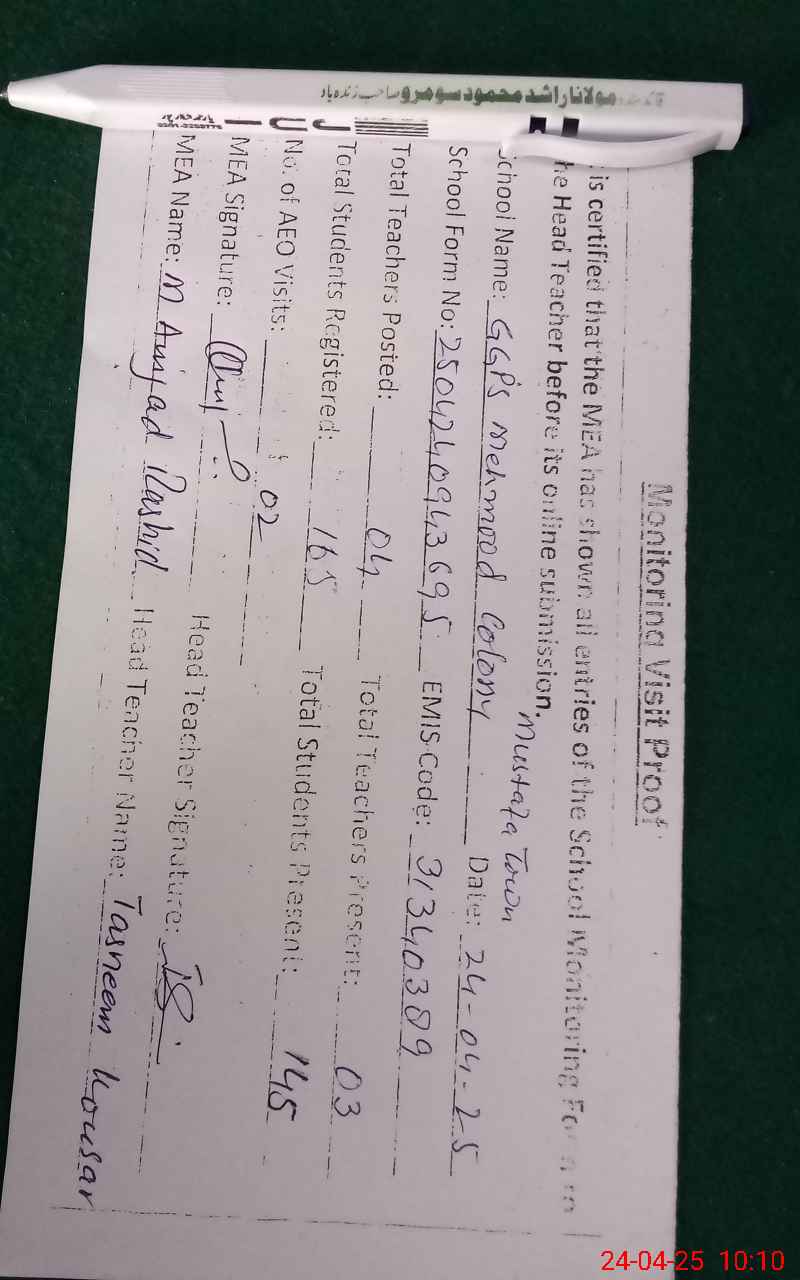 Monitoring Visit Proof
is certified that the MEA has shown all entries of the School Monitoring Form to
he Head Teacher before its online submission.
Mustafa Town
School Name: GGPS Mehmood Colony Date: 24-04-25
School Form No: 2504240943695 EMIS Code: 31340389
Total Teachers Posted: 04 Total Teachers Present: 03
Total Students Registered: 165 Total Students Present: 145
No. of AEO Visits: 02
MEA Signature: Head Teacher Signature:
MEA Name: M Amjad Rashid Head Teacher Name: Tasneem Kousar
مولانا راشد محمود سومرو صاحب زندہ باد
JUI
24-04-25 10:10